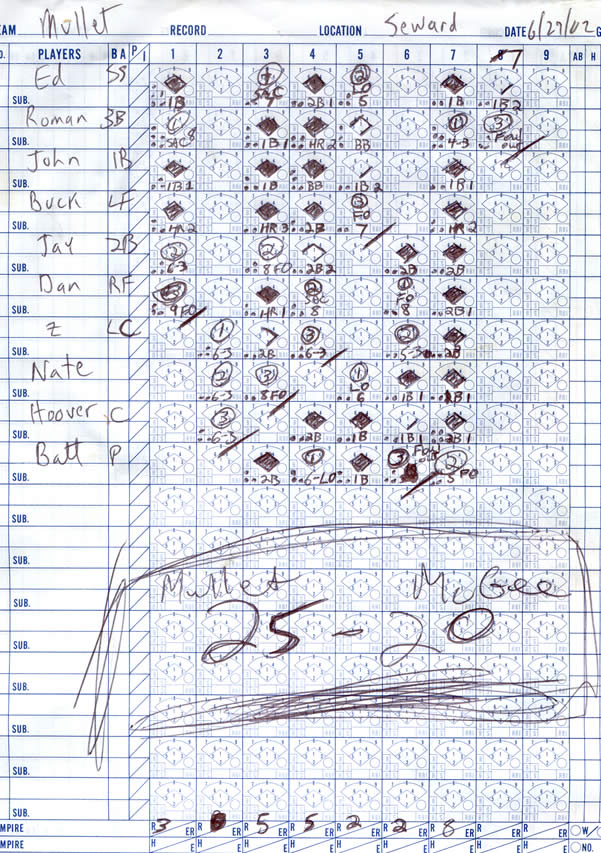 TEAM Mullet RECORD LOCATION Seward DATE 6/27/02
PLAYERS B A P I 1 2 3 4 5 6 7 8 7 9 AB H
Ed SS
1B SAC 2B 1 LO 6 1B 1B 2
SUB.
Roman 3B
SAC 8 1B 1 HR 2 BB 4-3 Foul out
SUB.
John 1B
1B 1 1B BB 1B 2 1B 1
SUB.
Buck LF
HR 2 HR 3 2B FO 7 HR 2
SUB.
Jay 2B
6-3 8 FO 2B 2 2B 2B
SUB.
Dan RF
9 FO HR 1 SAC 8 FO 8 2B 1
SUB.
Z LC
6-3 2B 6-3 5-3 2B
SUB.
Nate
6-3 8 FO LO 6 1B 1 2B 1
SUB.
Hoover C
6-3 2B 1B 1B 1 2B 1
SUB.
Batt P
2B 6-LO 1B Foul out 5 FO
SUB.
SUB.
SUB.
Mullet McGee
SUB.
25 - 20
SUB.
SUB.
SUB.
SUB.
SUB.
UMPIRE R 3 ER R ER R 5 ER R 5 ER R 2 ER R 2 ER R 8 ER R ER R ER W/
UMPIRE H E H E H E H E H E H E H E H E H E NO.